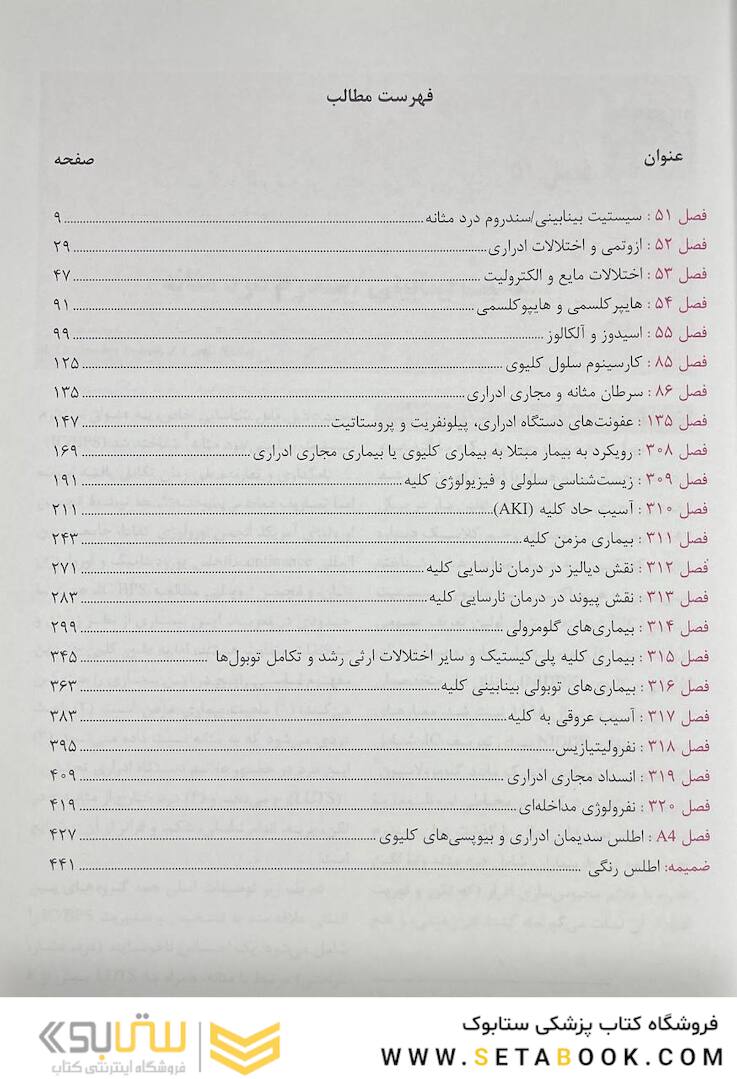 فهرست مطالب
عنوان صفحه
فصل ۵۱ : سیستیت بینابینی/سندروم درد مثانه ۹
فصل ۵۲ : ازوتمی و اختلالات ادراری ۲۹
فصل ۵۳ : اختلالات مایع و الکترولیت ۴۷
فصل ۵۴ : هایپرکلسمی و هایپوکلسمی ۹۱
فصل ۵۵ : اسیدوز و آلکالوز ۹۹
فصل ۸۵ : کارسینوم سلول کلیوی ۱۲۵
فصل ۸۶ : سرطان مثانه و مجاری ادراری ۱۳۵
فصل ۱۳۵ : عفونت‌های دستگاه ادراری، پیلونفریت و پروستاتیت ۱۴۷
فصل ۳۰۸ : رویکرد به بیمار مبتلا به بیماری کلیوی یا بیماری مجاری ادراری ۱۶۹
فصل ۳۰۹ : زیست‌شناسی سلولی و فیزیولوژی کلیه ۱۹۱
فصل ۳۱۰ : آسیب حاد کلیه (AKI) ۲۱۱
فصل ۳۱۱ : بیماری مزمن کلیه ۲۴۳
فصل ۳۱۲ : نقش دیالیز در درمان نارسایی کلیه ۲۷۱
فصل ۳۱۳ : نقش پیوند در درمان نارسایی کلیه ۲۸۳
فصل ۳۱۴ : بیماری‌های گلومرولی ۲۹۹
فصل ۳۱۵ : بیماری کلیه پلی‌کیستیک و سایر اختلالات ارثی رشد و تکامل توبول‌ها ۳۴۵
فصل ۳۱۶ : بیماری‌های توبولی بینابینی کلیه ۳۶۳
فصل ۳۱۷ : آسیب عروقی به کلیه ۳۸۳
فصل ۳۱۸ : نفرولیتیازیس ۳۹۵
فصل ۳۱۹ : انسداد مجاری ادراری ۴۰۹
فصل ۳۲۰ : نفرولوژی مداخله‌ای ۴۱۹
فصل A4 : اطلس سدیمان ادراری و بیوپسی‌های کلیوی ۴۲۷
ضمیمه: اطلس رنگی ۴۴۱
فروشگاه کتاب پزشکی ستابوک
WWW.SETABOOK.COM
ستابوک
فروشگاه اینترنتی کتاب